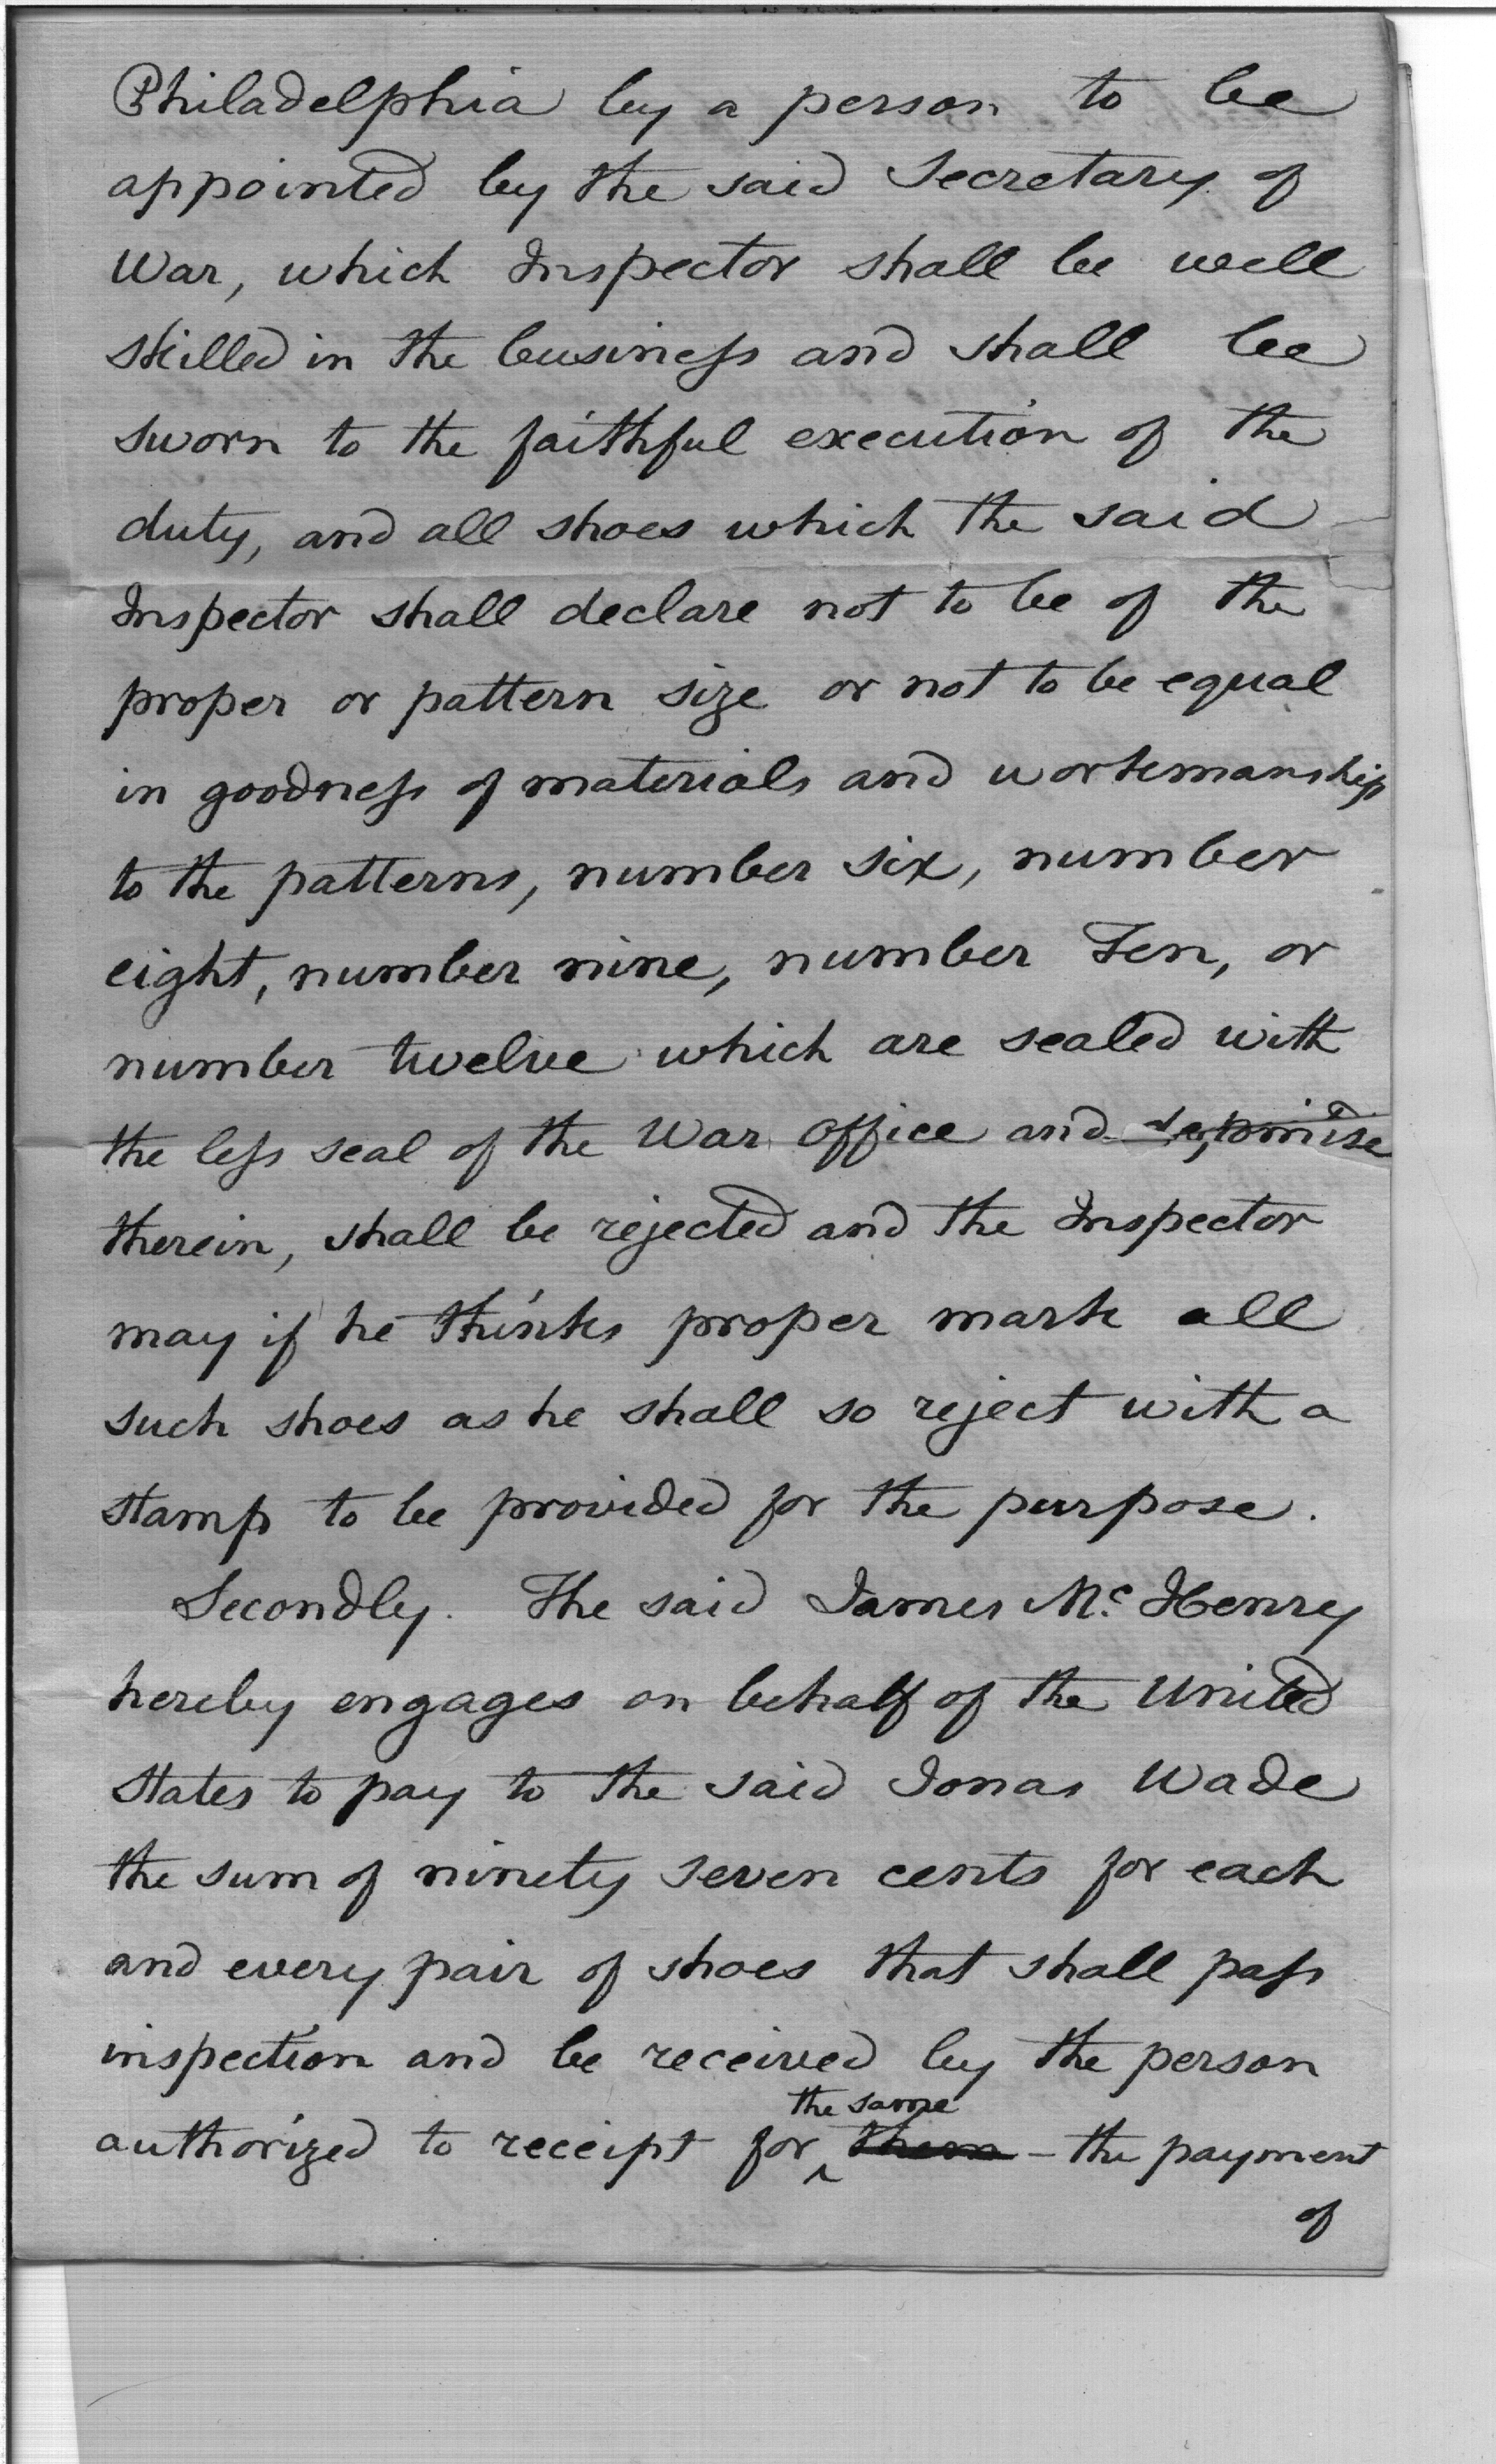 Philadelphia by a person to be
appointed by the said Secretary of
War, which Inspector shall be well
skilled in the business and shall be
sworn to the faithful execution of the
duty, and all shoes which the said
Inspector shall declare not to be of the
proper or pattern size or not to be equal
in goodness of materials and workmanship
to the patterns, number six, number
eight, number nine, number Ten, or
number twelve which are sealed with
the less seal of the War Office and
therein, shall be rejected and the Inspector
may if he thinks proper mark all
such shoes as he shall so reject with a
stamp to be provided for the purpose.
Secondly. The said James Mc Henry
hereby engages on behalf of the United
States to pay to the said Jonas Wade
the sum of ninety seven cents for each
and every pair of shoes that shall pass
inspection and be received by the person
the same
authorized to receipt for ‸ them – the payment
of